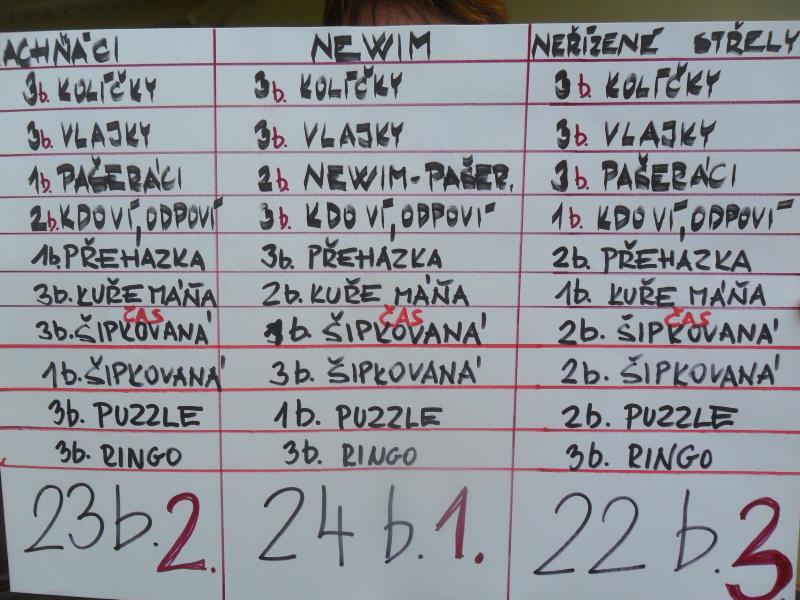 ACHŇÁCI NEWIM NEŘÍZENÉ STŘELY
3b. KOLÍČKY 3b. KOLÍČKY 3b. KOLÍČKY
3b. VLAJKY 3b. VLAJKY 3b. VLAJKY
1b. PAŠERÁCI 2b. NEWIM-PAŠER. 3b. PAŠERÁCI
2b. KDO VÍ, ODPOVÍ 3b. KDO VÍ, ODPOVÍ 1b. KDO VÍ, ODPOVÍ
1b. PŘEHÁZKA 3b. PŘEHÁZKA 2b. PŘEHÁZKA
3b. KUŘE MÁŇA 2b. KUŘE MÁŇA 1b. KUŘE MÁŇA
ČAS ČAS ČAS
3b. ŠIPKOVANÁ 1b. ŠIPKOVANÁ 2b. ŠIPKOVANÁ
1b. ŠIPKOVANÁ 3b. ŠIPKOVANÁ 2b. ŠIPKOVANÁ
3b. PUZZLE 1b. PUZZLE 2b. PUZZLE
3b. RINGO 3b. RINGO 3b. RINGO
23b. 2. 24 b. 1. 22 b. 3